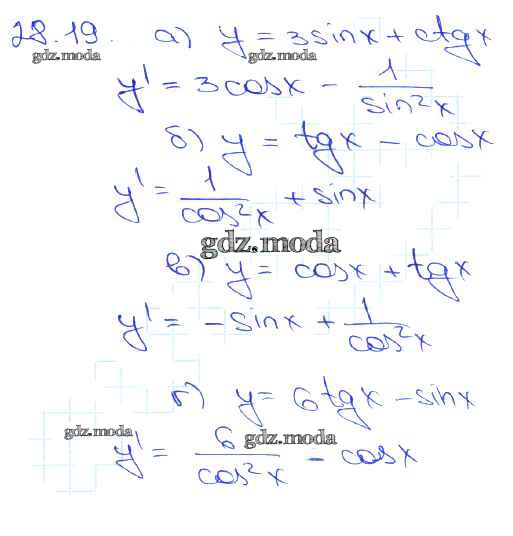 28.19. а) y = 3sinx + ctgx
gdz.moda gdz.moda
y' = 3cosx - 1/sin²x
б) y = tgx - cosx
y' = 1/cos²x + sinx
gdz.moda
в) y = cosx + tgx
y' = -sinx + 1/cos²x
г) y = 6tgx - sinx
gdz.moda gdz.moda
y' = 6/cos²x - cosx